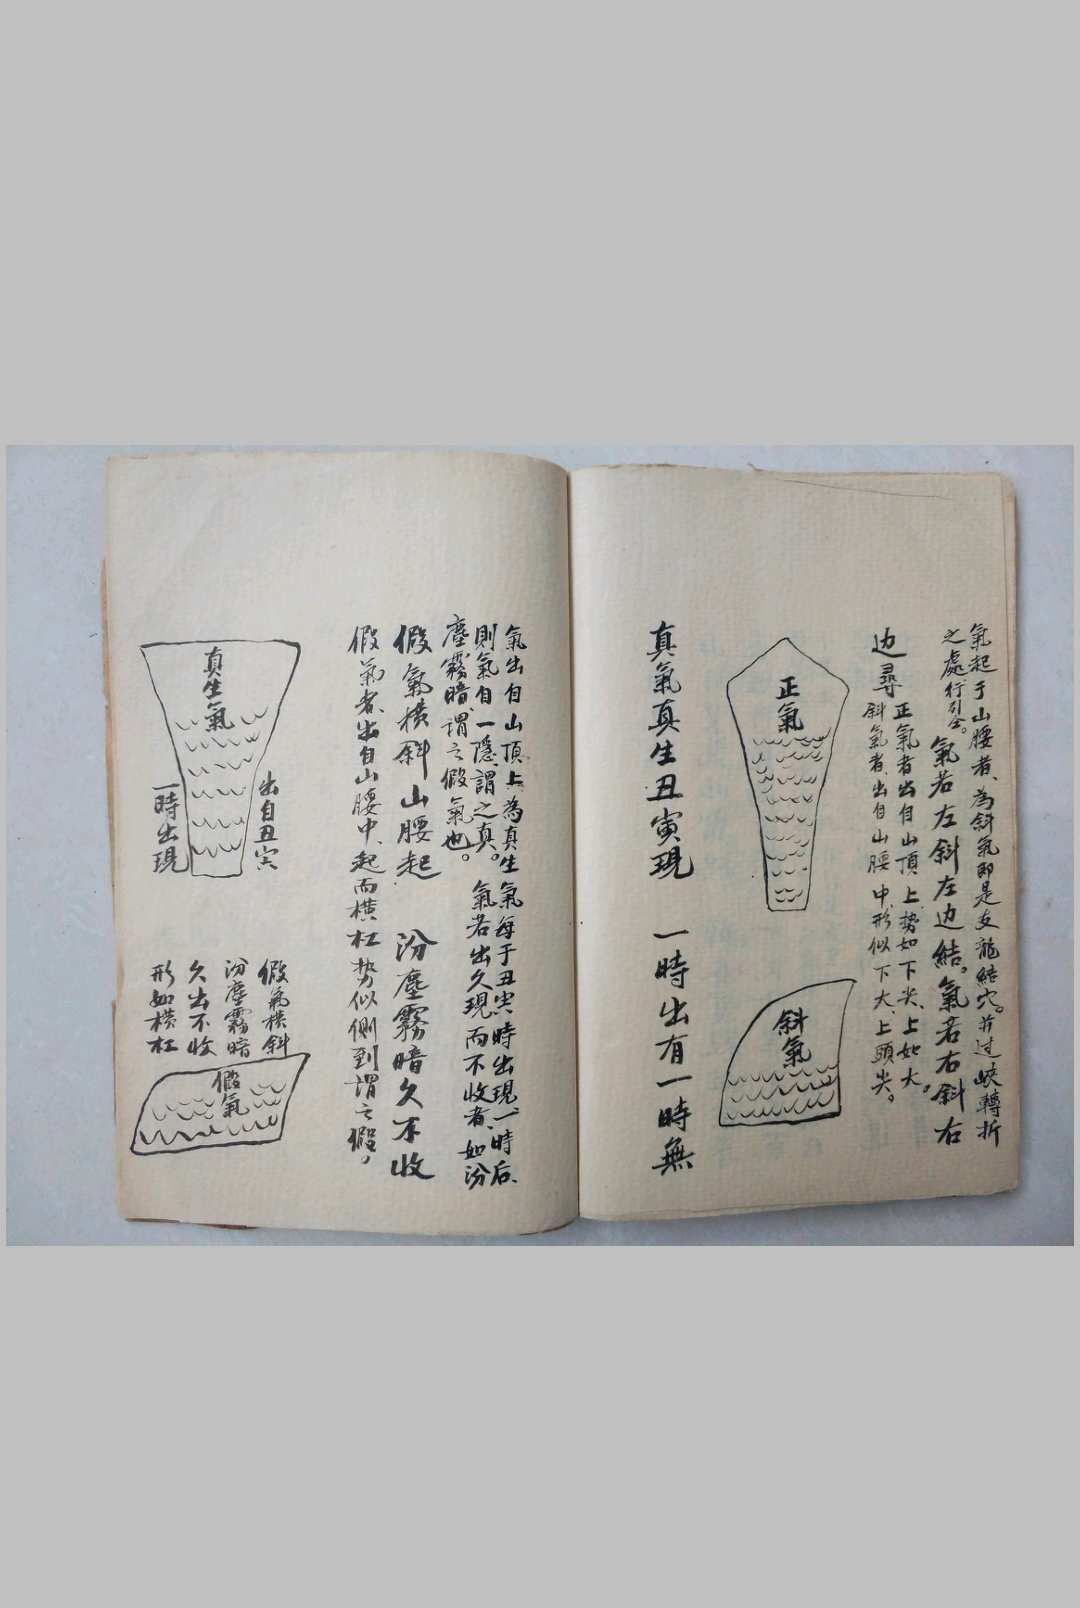 氣起于山腰者、為斜氣即是支龍結穴。并过峽轉折
之處行引全。氣若左斜左边結。氣若右斜右
边尋
正氣者出自山頂上、势如下尖、上如大。
斜氣者、出自山腰中、形似下大、上頭尖。
正氣
斜氣
真氣真生丑寅現 一時出有一時無
氣出自山頂上、為真生氣每于丑寅時出現、一時后、
則氣自一隱、謂之真。氣若出久現而不收者、如汾
塵霧暗、謂之假氣也。
假氣橫斜山腰起 汾塵霧暗久不收
假氣者、出自山腰中、起而橫杠势似側到謂之假。
真生氣
出自丑寅
一時出現
假氣橫斜
汾塵霧暗
久出不收
形如橫杠
假氣